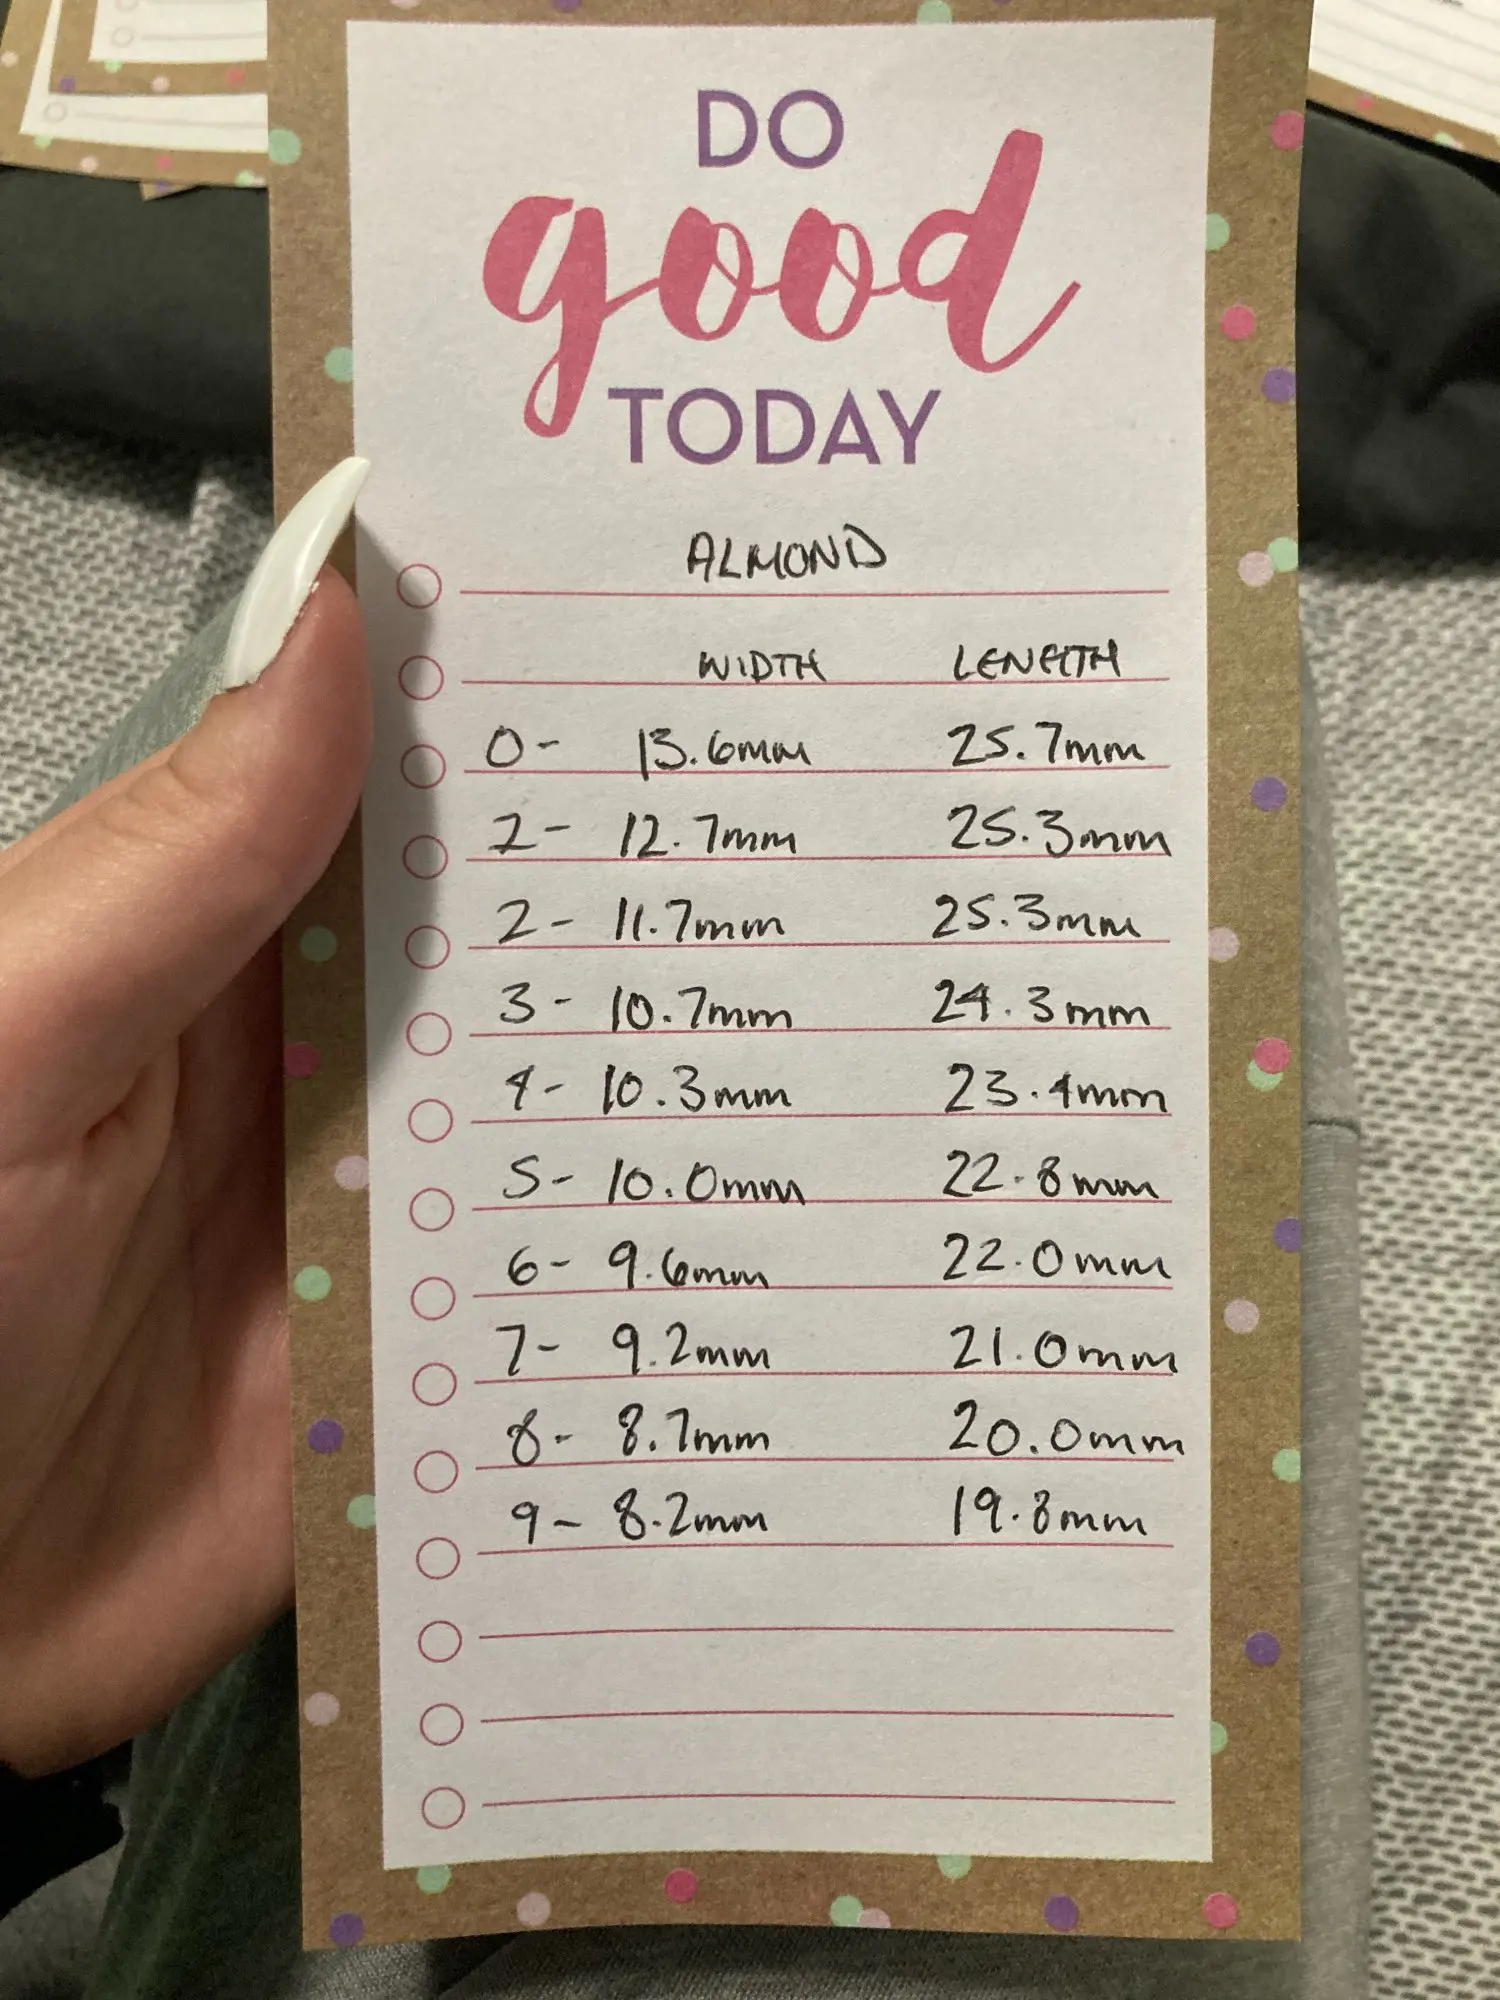 DO
good
TODAY
ALMOND
WIDTH LENGTH
0- 13.6mm 25.7mm
2- 12.7mm 25.3mm
2- 11.7mm 25.3mm
3- 10.7mm 24.3mm
4- 10.3mm 23.4mm
5- 10.0mm 22.8mm
6- 9.6mm 22.0mm
7- 9.2mm 21.0mm
8- 8.7mm 20.0mm
9- 8.2mm 19.8mm